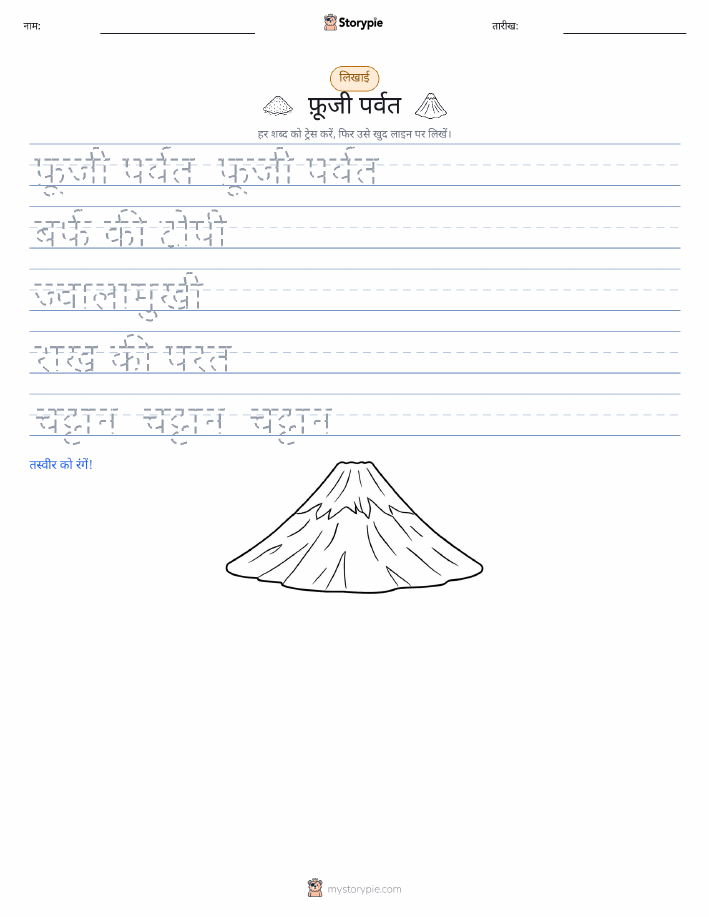 नाम:
Storypie
तारीख:
लिखाई
फ़ूजी पर्वत
हर शब्द को ट्रेस करें, फिर उसे खुद लाइन पर लिखें।
फ़ूजी पर्वत फ़ूजी पर्वत
बर्फ की टोपी
ज्वालामुखी
राख की परत
चट्टान चट्टान चट्टान
तस्वीर को रंगें!
mystorypie.com